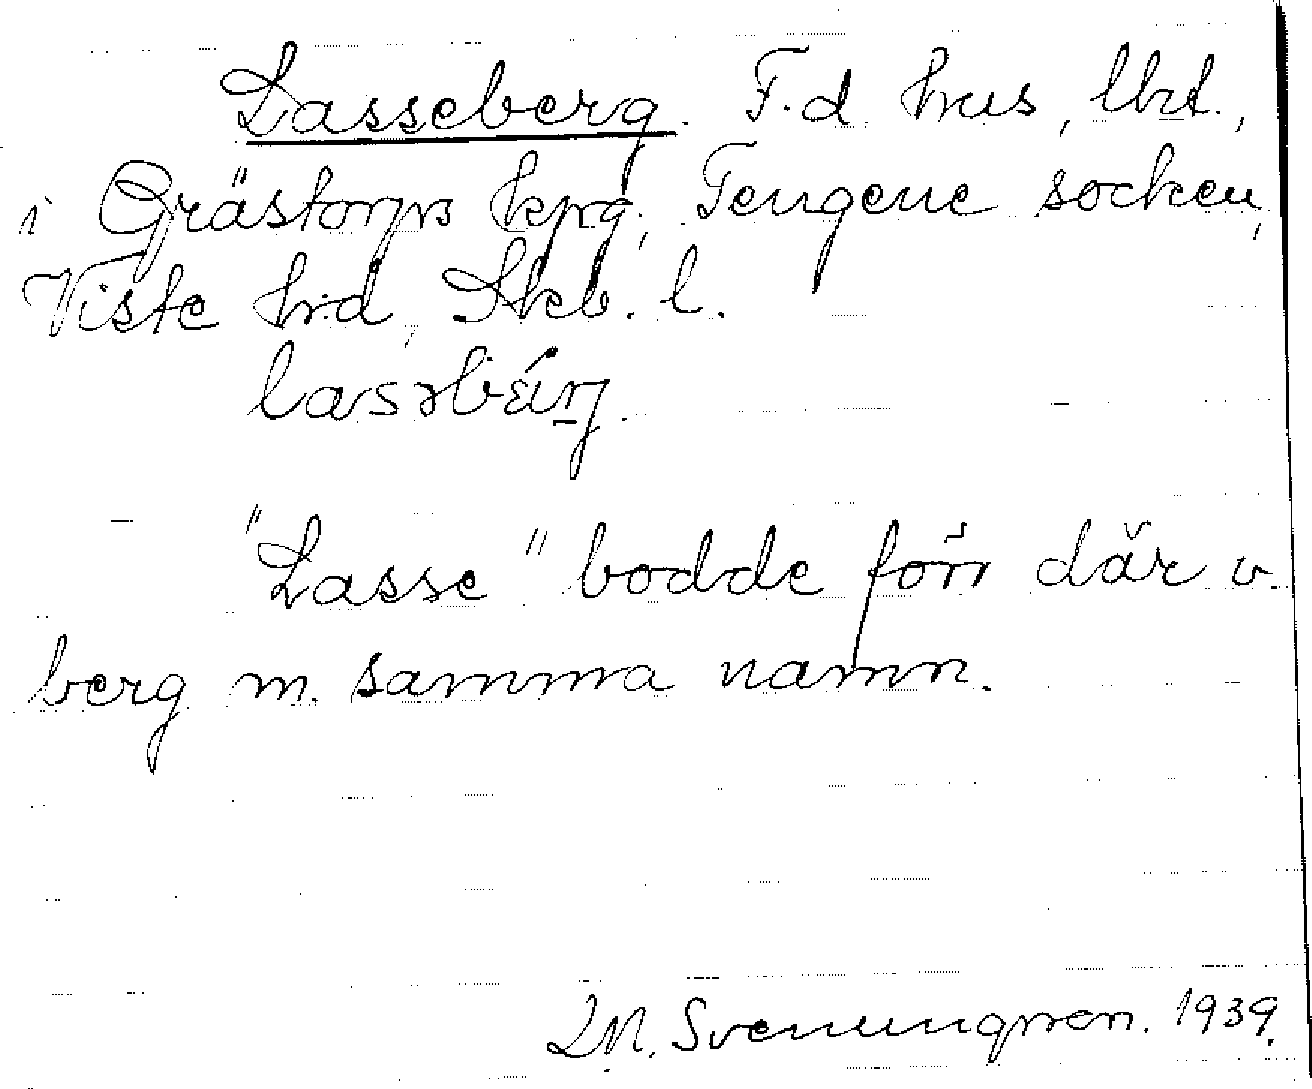 Lasseberg. F.d. hus, lht.,
i Grästorps kpg, Tengene socken,
Viste hd, Skb. l.
lasəbǽrj.
"Lasse" bodde förr där v.
berg m. samma namn.
D.N. Svenungsson. 1939.